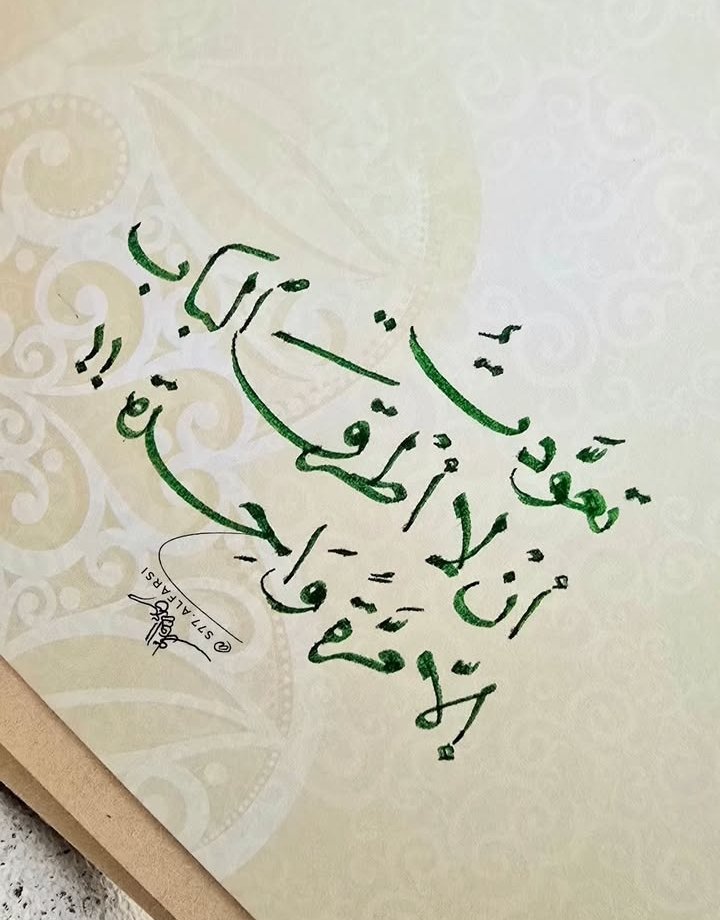 تعوَّدتُ
أن لا أطرقَ الباب
إلّا مرَّةً وَاحِدة !!
@S77.ALFARSI